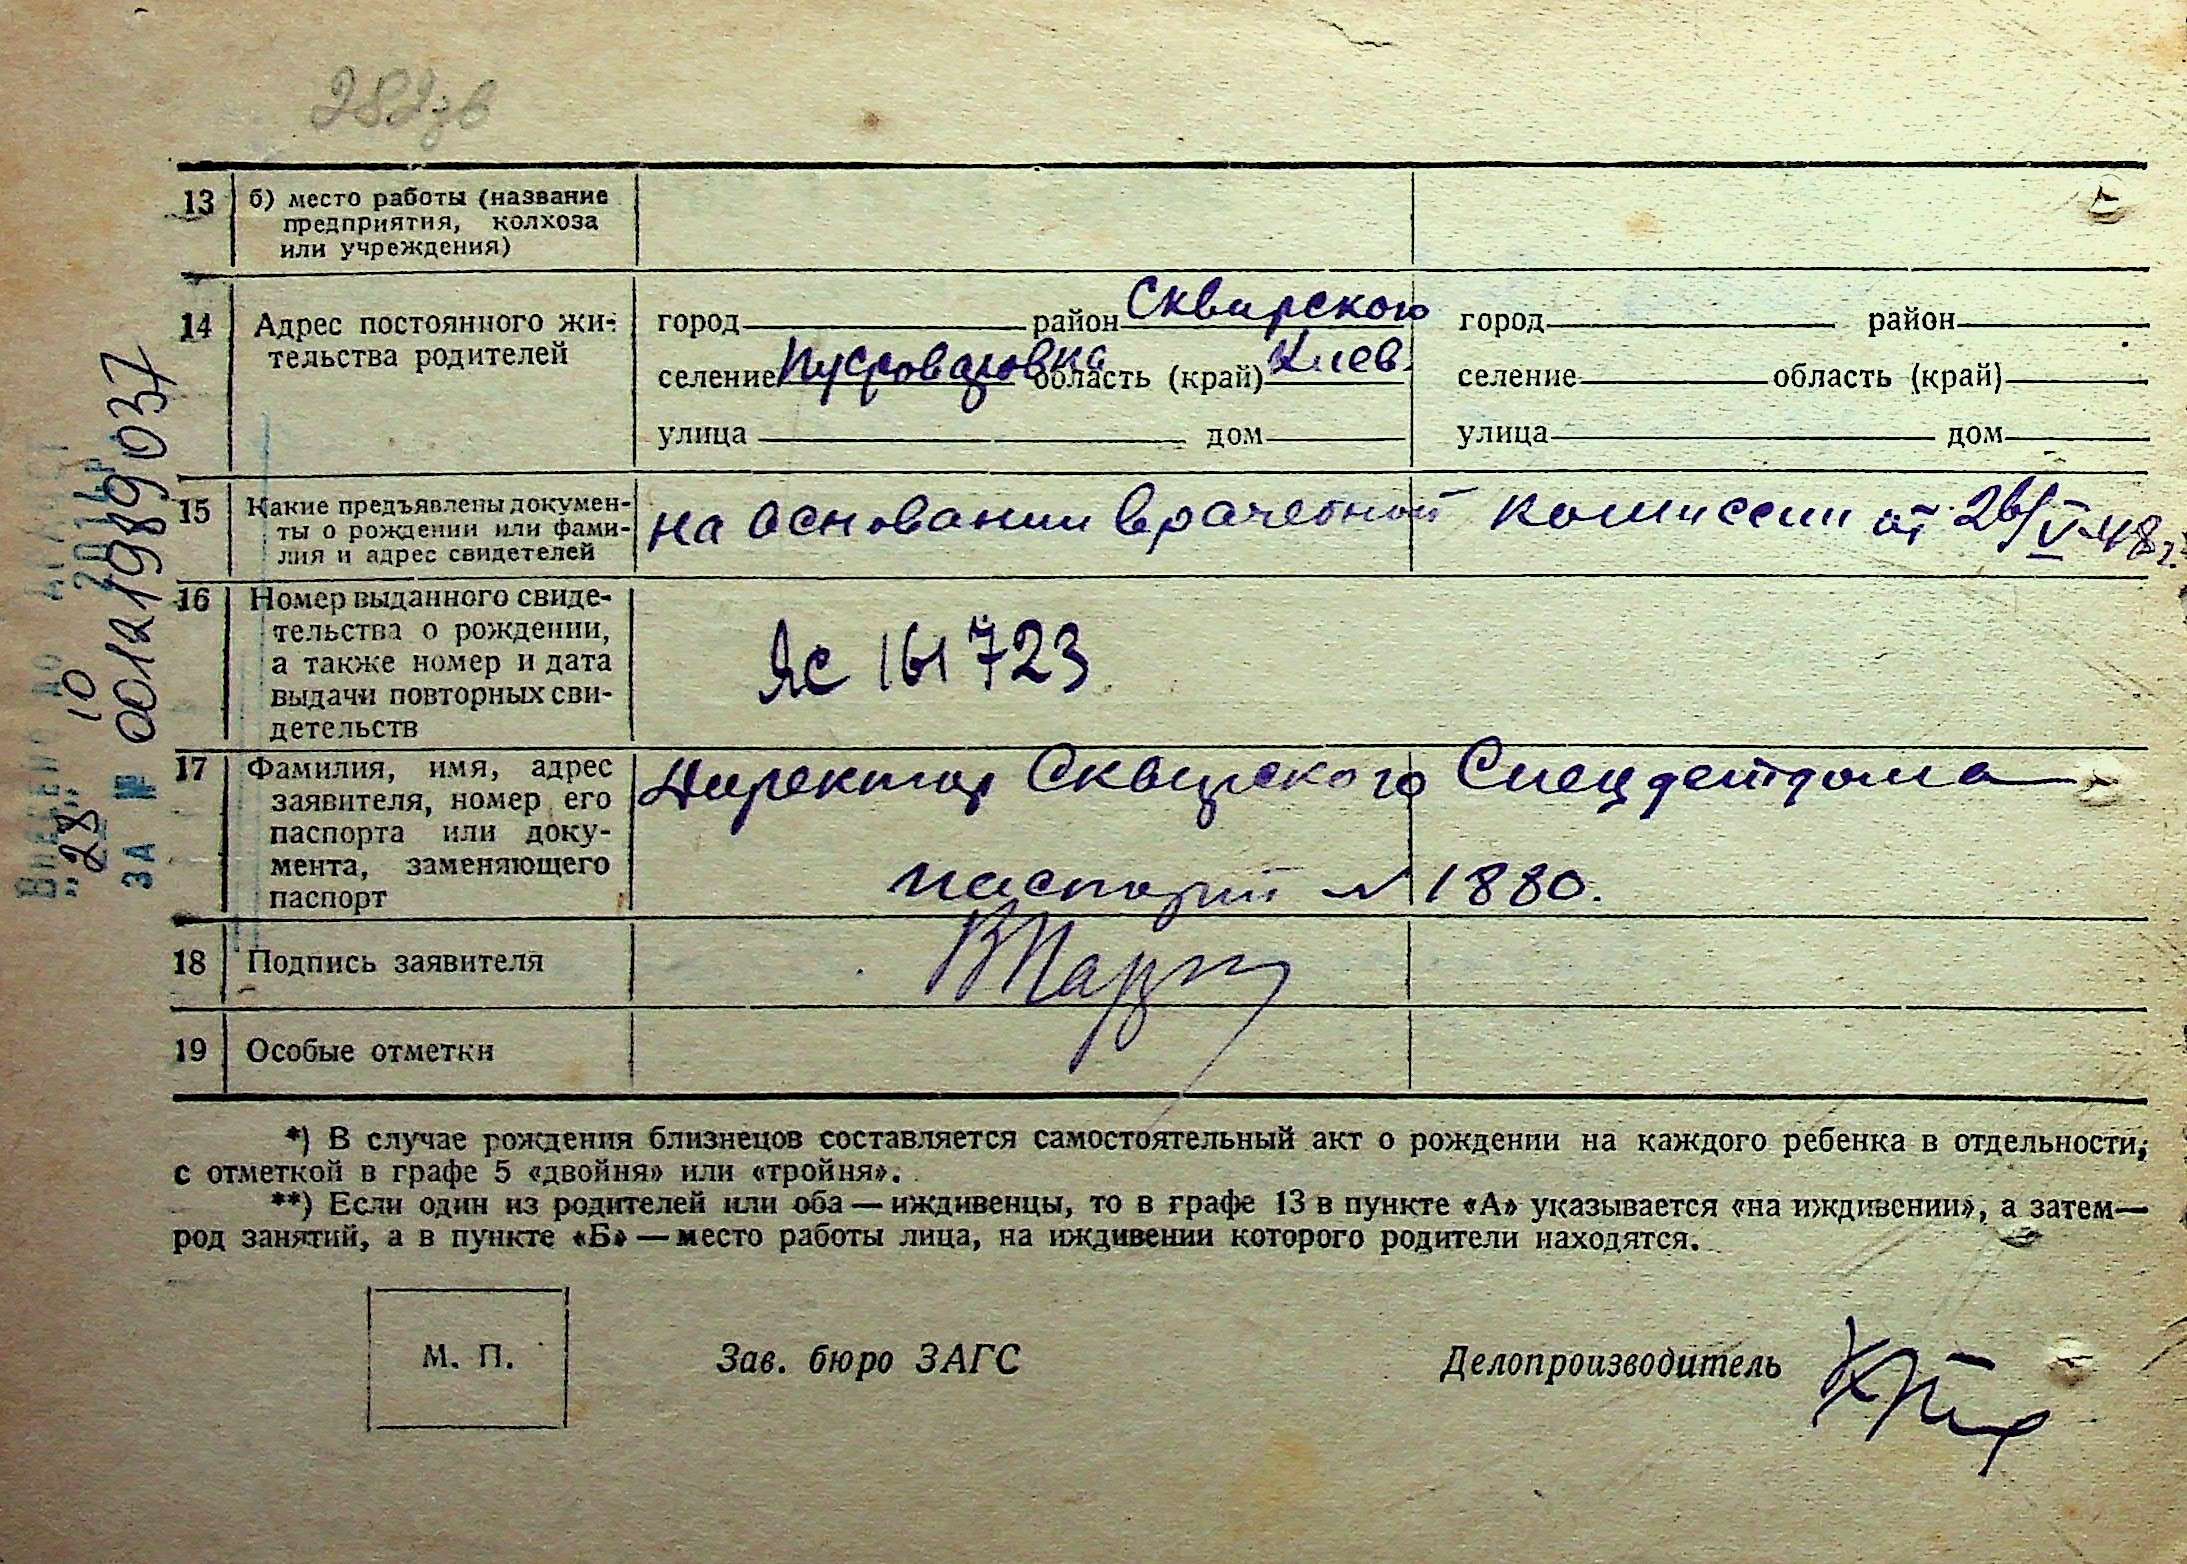 282зв
13 б) место работы (название
предприятия, колхоза
или учреждения)
14 Адрес постоянного жи-
тельства родителей
город район Сквирского
селение Пустоваровка область (край) Киев.
улица дом
город район
селение область (край)
улица дом
15 Какие предъявлены докумен-
ты о рождении или фами-
лия и адрес свидетелей
на основании врачебной комиссии от 26/V-48 г.
16 Номер выданного свиде-
тельства о рождении,
а также номер и дата
выдачи повторных сви-
детельств
ЯС 161723
17 Фамилия, имя, адрес
заявителя, номер его
паспорта или доку-
мента, заменяющего
паспорт
Директор Сквирского Спецдетдома
паспорт № 1880.
18 Подпись заявителя
19 Особые отметки
*) В случае рождения близнецов составляется самостоятельный акт о рождении на каждого ребенка в отдельности,
с отметкой в графе 5 «двойня» или «тройня».
**) Если один из родителей или оба — иждивенцы, то в графе 13 в пункте «А» указывается «на иждивении», а затем —
род занятий, а в пункте «Б» — место работы лица, на иждивении которого родители находятся.
М. П.
Зав. бюро ЗАГС
Делопроизводитель
"28" 10 20
ЗА № 00121989037